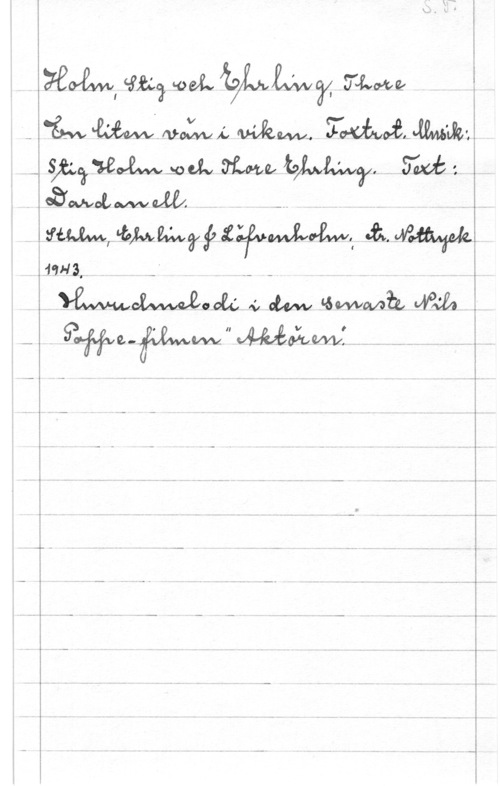 S. T.
Holm, Stig och Ehrling, Thore
En liten vän i viken. Foxtrot. Musik:
Stig Holm och Thore Ehrling. Text:
Dardanell.
Sthlm, Ehrling & Löfvenholm, tr. Nottryck
1943.
Huvudmelodi i den senaste Nils
Poppe-filmen "Aktören".